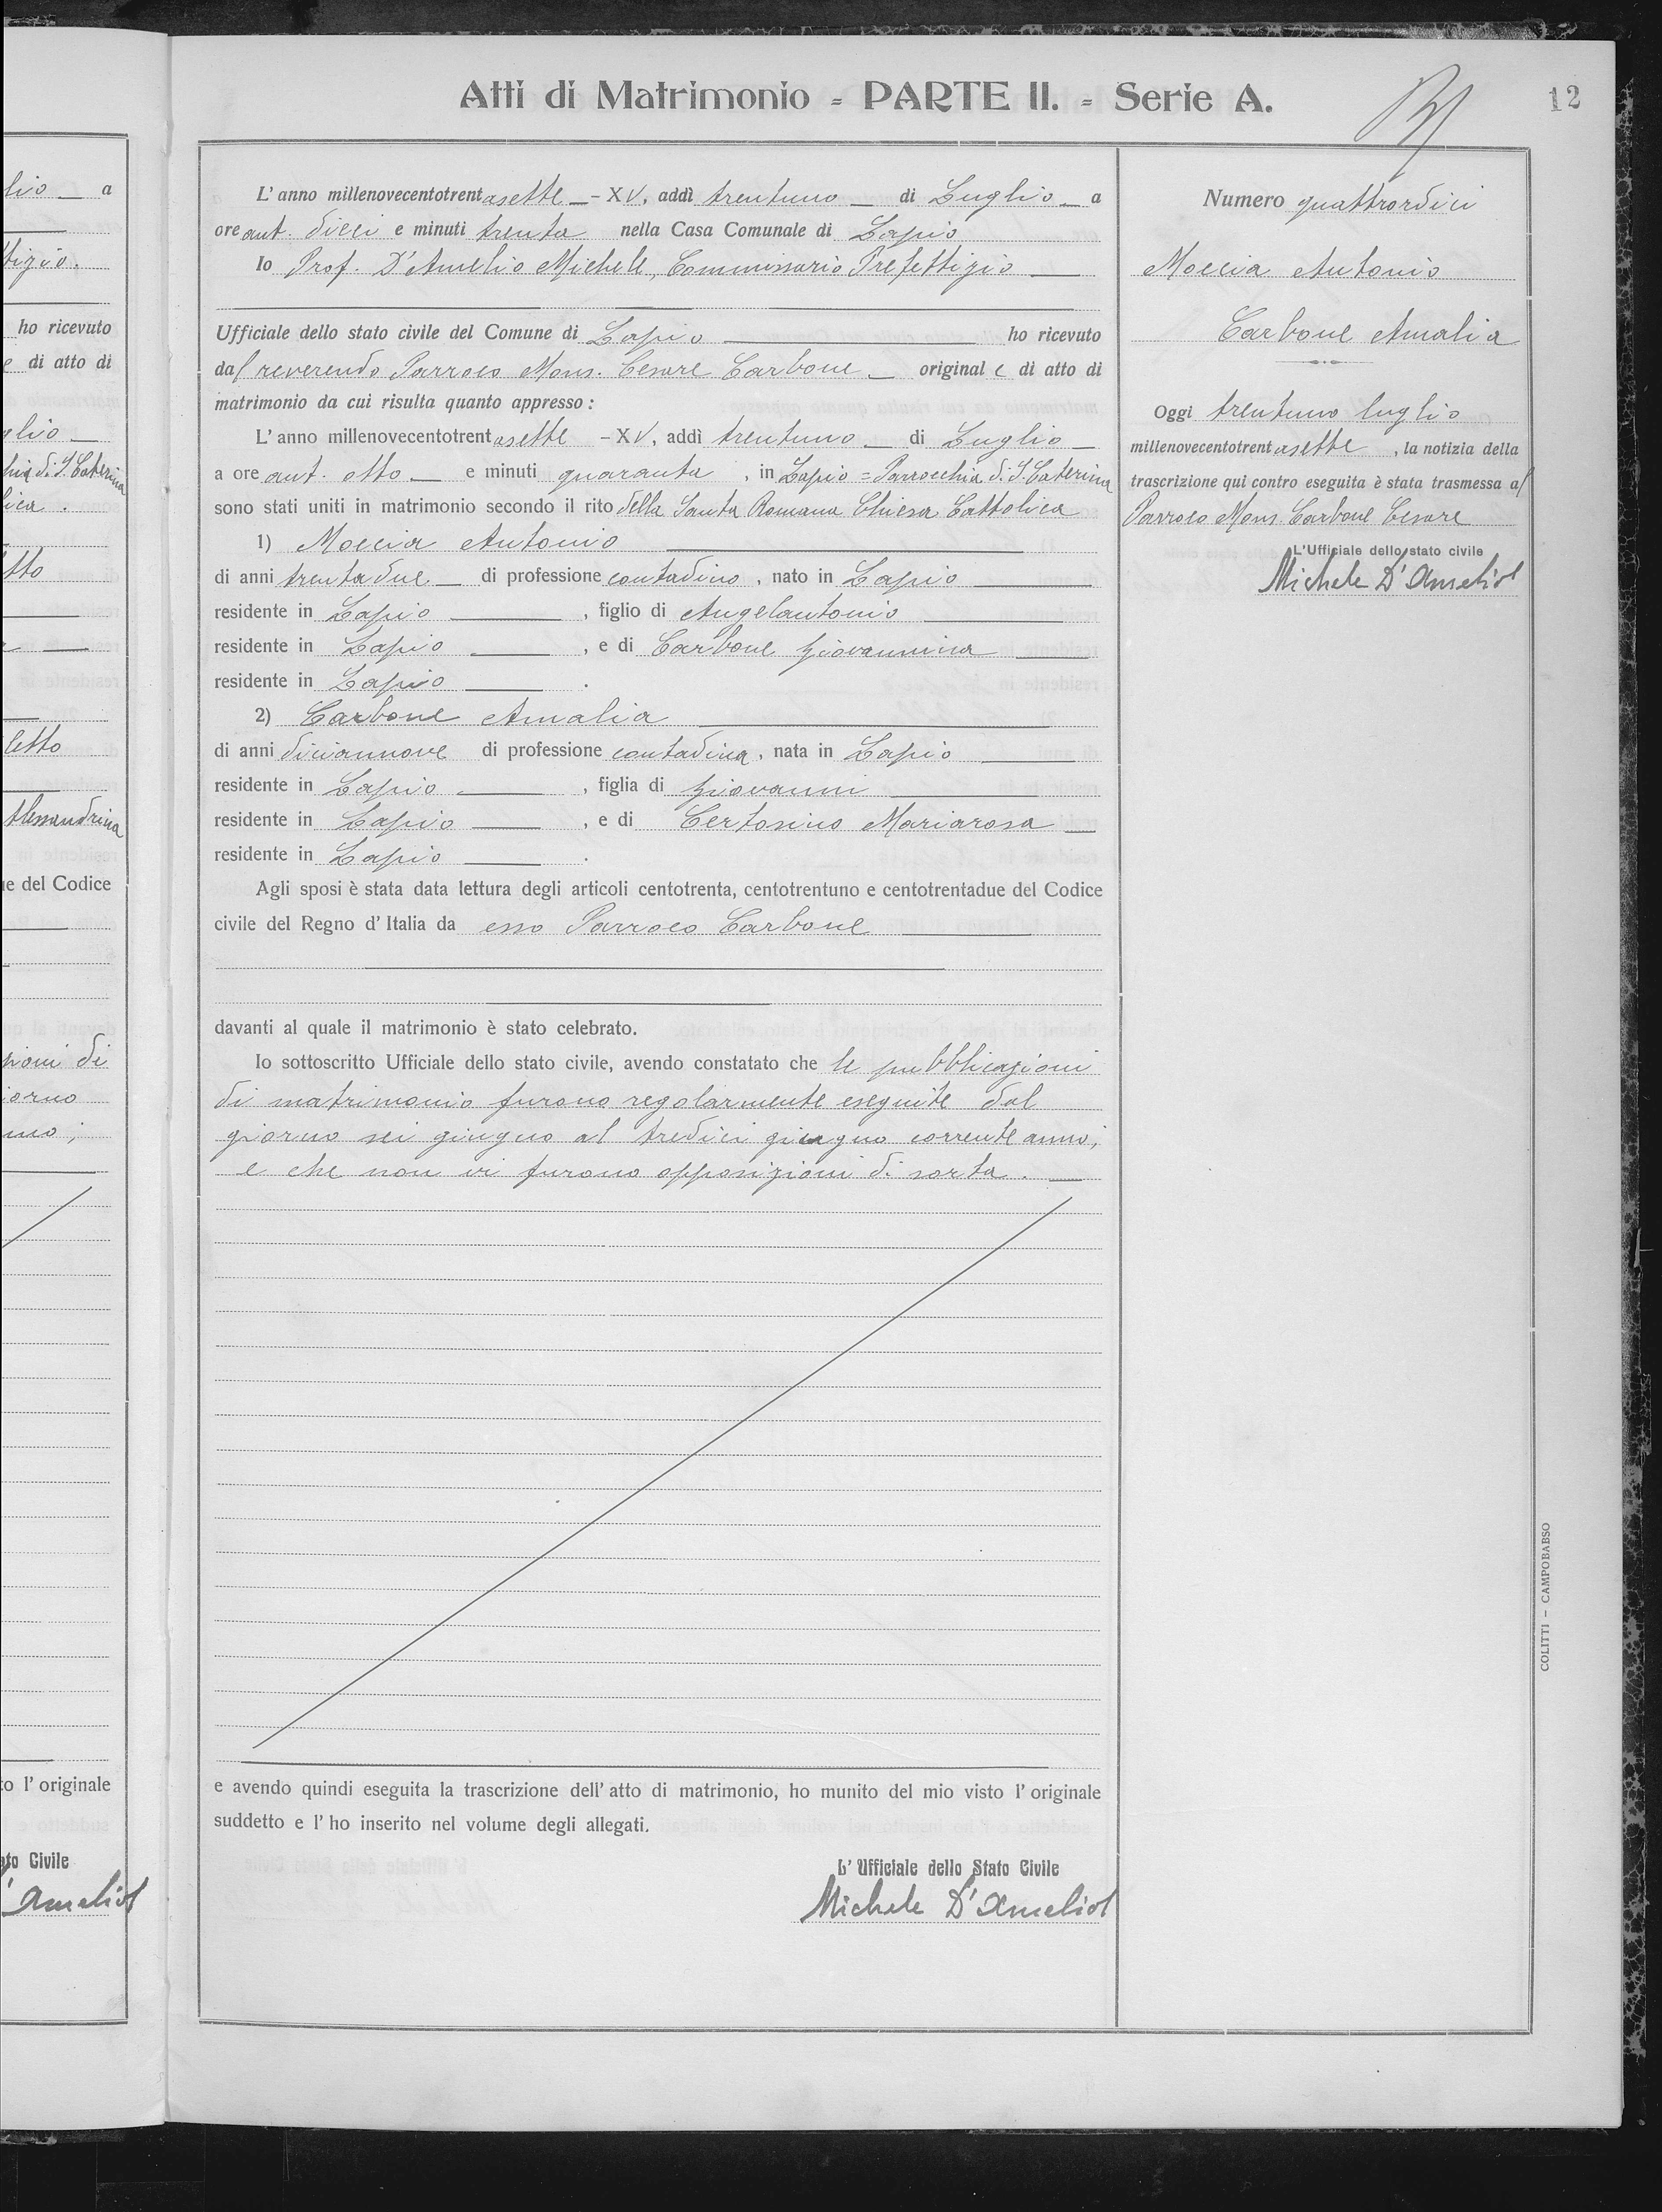 lio a
tizio.
ho ricevuto
e di atto di
glio
hia di S. Caterina
lica.
tto
letto
Alessandrina
ue del Codice
zioni di
iorno
nno;
to l'originale
ato Civile
D'Ameliof
Atti di Matrimonio - PARTE II. - Serie A.
12
L'anno millenovecentotrentasette - XV, addì trentuno di Luglio a
ore ant. dieci e minuti trenta nella Casa Comunale di Lapio
Io Prof. D'Amelio Michele, Commissario Prefettizio
Ufficiale dello stato civile del Comune di Lapio ho ricevuto
dal reverendo Parroco Mons. Cesare Carbone original e di atto di
matrimonio da cui risulta quanto appresso:
L'anno millenovecentotrentasette - XV, addì trentuno di Luglio
a ore ant. otto e minuti quaranta, in Lapio = Parrocchia di S. Caterina
sono stati uniti in matrimonio secondo il rito della Santa Romana Chiesa Cattolica
1) Moccia Antonio
di anni trentadue di professione contadino, nato in Lapio
residente in Lapio, figlio di Angelantonio
residente in Lapio, e di Carbone Giovannina
residente in Lapio.
2) Carbone Amalia
di anni diciannove di professione contadina, nata in Lapio
residente in Lapio, figlia di Giovanni
residente in Lapio, e di Certosino Mariarosa
residente in Lapio.
Agli sposi è stata data lettura degli articoli centotrenta, centotrentuno e centotrentadue del Codice
civile del Regno d'Italia da esso Parroco Carbone
davanti al quale il matrimonio è stato celebrato.
Io sottoscritto Ufficiale dello stato civile, avendo constatato che le pubblicazioni
di matrimonio furono regolarmente eseguite dal
giorno sei giugno al tredici giugno corrente anno;
e che non vi furono opposizioni di sorta.
e avendo quindi eseguita la trascrizione dell'atto di matrimonio, ho munito del mio visto l'originale
suddetto e l'ho inserito nel volume degli allegati.
L'Ufficiale dello Stato Civile
Michele D'Ameliof
Numero quattrordici
Moccia Antonio
Carbone Amalia
Oggi trentuno luglio
millenovecentotrentasette, la notizia della
trascrizione qui contro eseguita è stata trasmessa al
Parroco Mons. Carbone Cesare
L'Ufficiale dello stato civile
Michele D'Ameliof
COLITTI - CAMPOBABSO